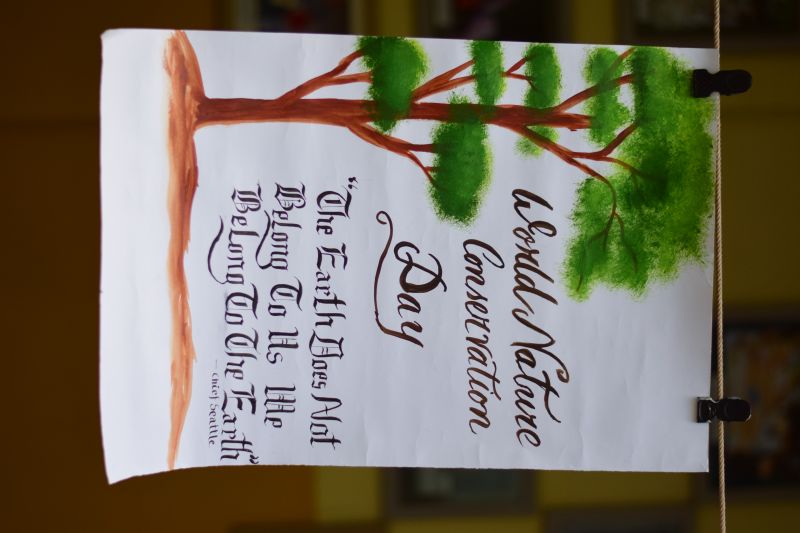 World Nature
Conservation
Day
“The Earth Does Not
Belong To Us We
Belong To The Earth”
- Chief Seattle